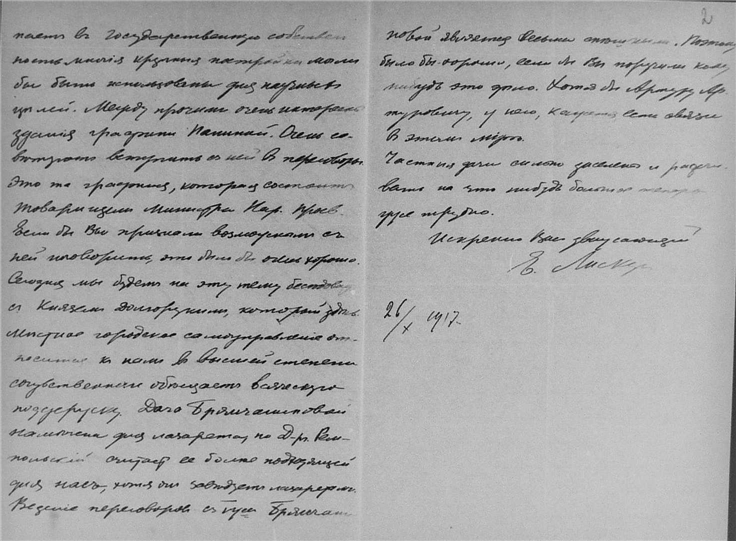 паетъ въ государственную собствен
ность многія крупныя постройки могли
бы быть использованы для научныхъ
цѣлей. Между прочимъ очень интересны
зданія графини Паниной. Очень со-
вѣтуютъ вступить съ ней въ переговоры
Это та графиня, которая состоитъ
товарищемъ Министра Нар. Просв.
Если бы Вы признали возможнымъ съ
ней поговорить, это было бы очень хорошо.
Сегодня мы будемъ на эту тему бесѣдовать
съ Княземъ Долгорукимъ, который здѣсь
Мѣстное городское самоуправленіе от-
носится къ намъ въ высшей степени
сочувственно и обѣщаетъ всяческую
поддержку. Дача Брянчаниновой
намѣчена для лазарета, но Д-ръ
польскій считаетъ ее болѣе подходящей
для насъ, хотя онъ завѣдуетъ лазаретомъ.
Веденіе переговоровъ съ Брянчани
2
новой является весьма Поэтому
было бы хорошо, если бы Вы поручили кому
нибудь это дѣло. Хотя бы Артуру Ар-
туровичу, у него, кажется есть связи
въ этомъ мірѣ.
Частныя дачи сильно заселены и разсчи-
вать на что нибудь большое теперь
уже трудно.
Искренно Васъ уважающій
26/X 1917.